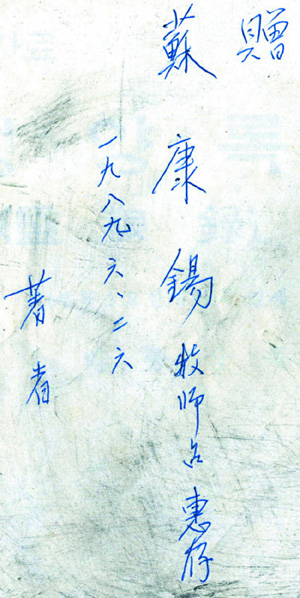 贈
蘇康錫牧師台惠存
一九八九、六、二六
著者